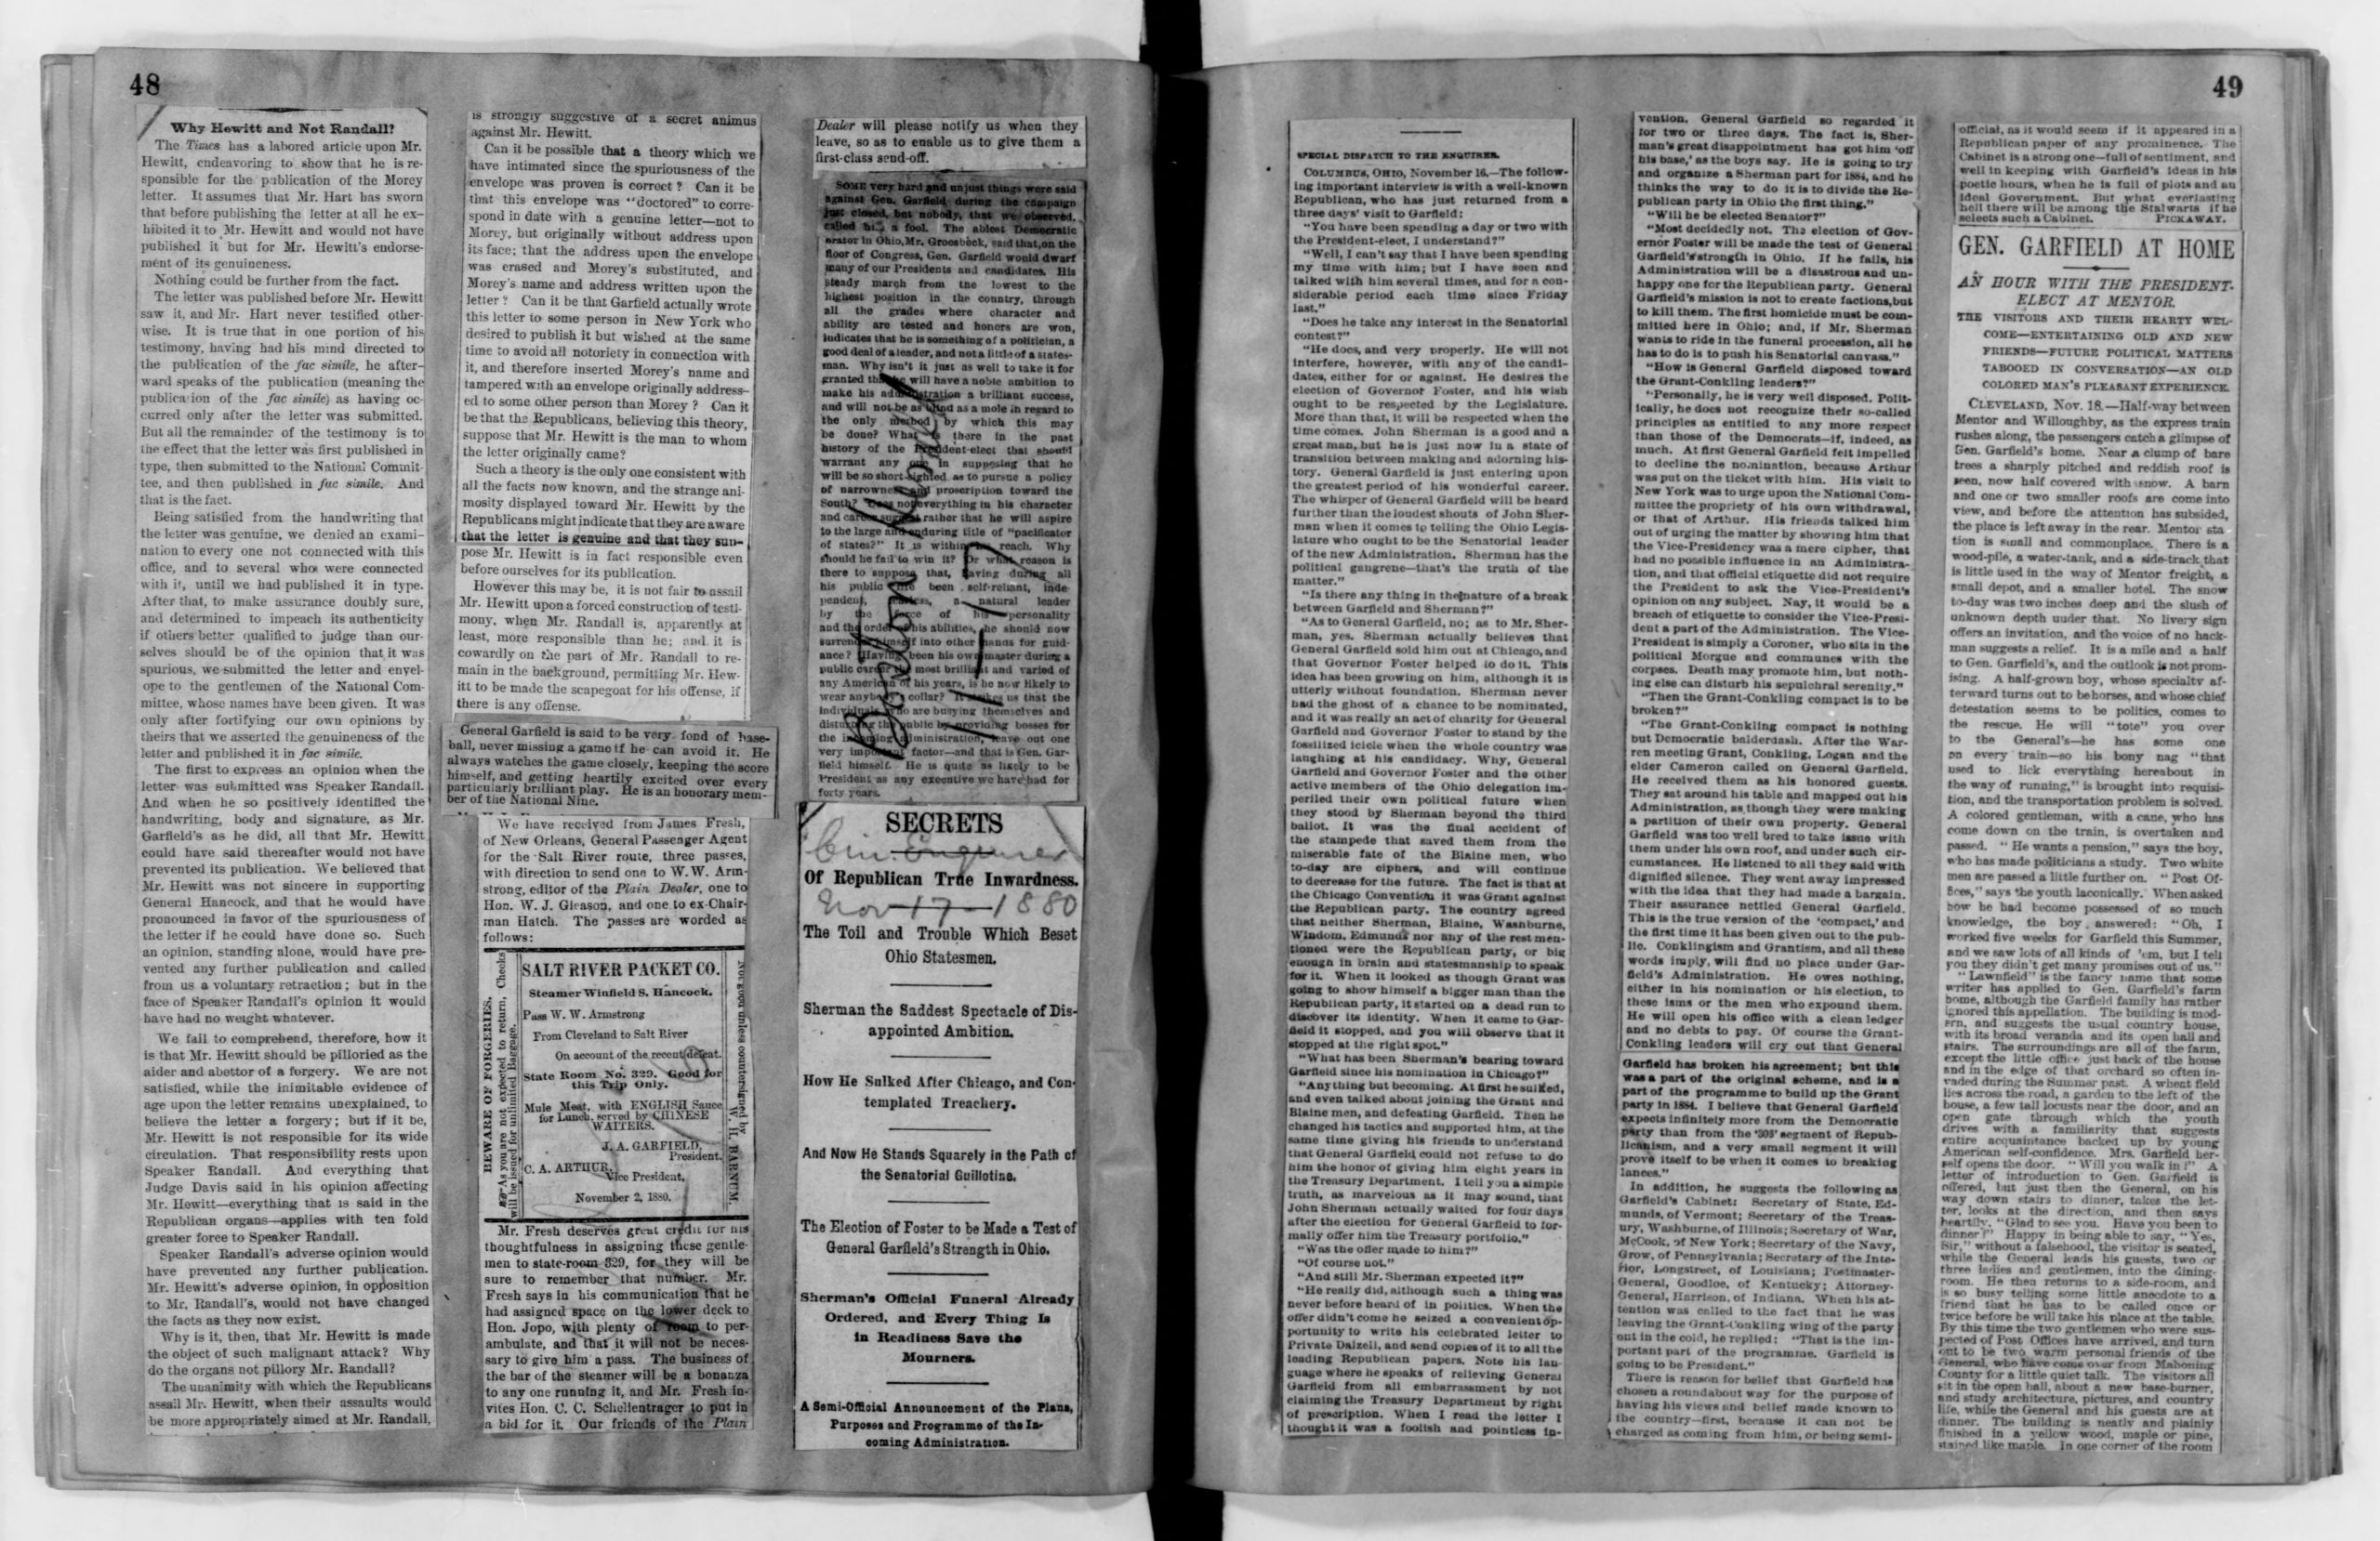 48
Why Hewitt and Not Randall?
The Times has a labored article upon Mr.
Hewitt, endeavoring to show that he is re-
sponsible for the publication of the Morey
letter. It assumes that Mr. Hart has sworn
that before publishing the letter at all he ex-
hibited it to Mr. Hewitt and would not have
published it but for Mr. Hewitt's endorse-
ment of its genuineness.
Nothing could be further from the fact.
The letter was published before Mr. Hewitt
saw it, and Mr. Hart never testified other-
wise. It is true that in one portion of his
testimony, having had his mind directed to
the publication of the fac simile, he after-
ward speaks of the publication (meaning the
publication of the fac simile) as having oc-
curred only after the letter was submitted.
But all the remainder of the testimony is to
the effect that the letter was first published in
type, then submitted to the National Commit-
tee, and then published in fac simile. And
that is the fact.
Being satisfied from the handwriting that
the letter was genuine, we denied an exami-
nation to every one not connected with this
office, and to several who were connected
with it, until we had published it in type.
After that, to make assurance doubly sure,
and determined to impeach its authenticity
if others better qualified to judge than our-
selves should be of the opinion that it was
spurious, we submitted the letter and envel-
ope to the gentlemen of the National Com-
mittee, whose names have been given. It was
only after fortifying our own opinions by
theirs that we asserted the genuineness of the
letter and published it in fac simile.
The first to express an opinion when the
letter was submitted was Speaker Randall.
And when he so positively identified the
handwriting, body and signature, as Mr.
Garfield's as he did, all that Mr. Hewitt
could have said thereafter would not have
prevented its publication. We believed that
Mr. Hewitt was not sincere in supporting
General Hancock, and that he would have
pronounced in favor of the spuriousness of
the letter if he could have done so. Such
an opinion, standing alone, would have pre-
vented any further publication and called
from us a voluntary retraction; but in the
face of Speaker Randall's opinion it would
have had no weight whatever.
We fail to comprehend, therefore, how it
is that Mr. Hewitt should be pilloried as the
aider and abettor of a forgery. We are not
satisfied, while the inimitable evidence of
age upon the letter remains unexplained, to
believe the letter a forgery; but if it be,
Mr. Hewitt is not responsible for its wide
circulation. That responsibility rests upon
Speaker Randall. And everything that
Judge Davis said in his opinion affecting
Mr. Hewitt—everything that is said in the
Republican organs—applies with ten fold
greater force to Speaker Randall.
Speaker Randall's adverse opinion would
have prevented any further publication.
Mr. Hewitt's adverse opinion, in opposition
to Mr. Randall's, would not have changed
the facts as they now exist.
Why is it, then, that Mr. Hewitt is made
the object of such malignant attack? Why
do the organs not pillory Mr. Randall?
The unanimity with which the Republicans
assail Mr. Hewitt, when their assaults would
be more appropriately aimed at Mr. Randall,
is strongly suggestive of a secret animus
against Mr. Hewitt.
Can it be possible that a theory which we
have intimated since the spuriousness of the
envelope was proven is correct? Can it be
that this envelope was "doctored" to corre-
spond in date with a genuine letter—not to
Morey, but originally without address upon
its face; that the address upon the envelope
was erased and Morey's substituted, and
Morey's name and address written upon the
letter? Can it be that Garfield actually wrote
this letter to some person in New York who
desired to publish it but wished at the same
time to avoid all notoriety in connection with
it, and therefore inserted Morey's name and
tampered with an envelope originally address-
ed to some other person than Morey? Can it
be that the Republicans, believing this theory,
suppose that Mr. Hewitt is the man to whom
the letter originally came?
Such a theory is the only one consistent with
all the facts now known, and the strange ani-
mosity displayed toward Mr. Hewitt by the
Republicans might indicate that they are aware
that the letter is genuine and that they sup-
pose Mr. Hewitt is in fact responsible even
before ourselves for its publication.
However this may be, it is not fair to assail
Mr. Hewitt upon a forced construction of testi-
mony, when Mr. Randall is, apparently at
least, more responsible than he; and it is
cowardly on the part of Mr. Randall to re-
main in the background, permitting Mr. Hew-
itt to be made the scapegoat for his offense, if
there is any offense.
General Garfield is said to be very fond of base-
ball, never missing a game if he can avoid it. He
always watches the game closely, keeping the score
himself, and getting heartily excited over every
particularly brilliant play. He is an honorary mem-
ber of the National Nine.
We have received from James Fresh,
of New Orleans, General Passenger Agent
for the Salt River route, three passes,
with direction to send one to W. W. Arm-
strong, editor of the Plain Dealer, one to
Hon. W. J. Gleason, and one to ex-Chair-
man Hatch. The passes are worded as
follows:
BEWARE OF FORGERIES.
As you are not expected to return, Checks
will be issued for unlimited Baggage.
SALT RIVER PACKET CO.
Steamer Winfield S. Hancock.
Pass W. W. Armstrong
From Cleveland to Salt River
On account of the recent defeat.
State Room No. 329. Good for
this Trip Only.
Mule Meat, with ENGLISH Sauce
for Lunch, served by CHINESE
WAITERS.
J. A. GARFIELD,
President.
C. A. ARTHUR,
Vice President.
November 2, 1880.
Not good unless countersigned by
W. H. BARNUM.
Mr. Fresh deserves great credit for his
thoughtfulness in assigning these gentle-
men to state-room 329, for they will be
sure to remember that number. Mr.
Fresh says in his communication that he
had assigned space on the lower deck to
Hon. Jopo, with plenty of room to per-
ambulate, and that it will not be neces-
sary to give him a pass. The business of
the bar of the steamer will be a bonanza
to any one running it, and Mr. Fresh in-
vites Hon. C. C. Schellentrager to put in
a bid for it. Our friends of the Plain
Dealer will please notify us when they
leave, so as to enable us to give them a
first-class send-off.
SOME very hard and unjust things were said
against Gen. Garfield during the campaign
just closed, but nobody, that we observed,
called him a fool. The ablest Democratic
orator in Ohio, Mr. Groesbeck, said that, on the
floor of Congress, Gen. Garfield would dwarf
many of our Presidents and candidates. His
steady march from the lowest to the
highest position in the country, through
all the grades where character and
ability are tested and honors are won,
indicates that he is something of a politician, a
good deal of a leader, and not a little of a states-
man. Why isn't it just as well to take it for
granted that he will have a noble ambition to
make his administration a brilliant success,
and will not be as blind as a mole in regard to
the only method by which this may
be done? What is there in the past
history of the President-elect that should
warrant any one in supposing that he
will be so short-sighted as to pursue a policy
of narrowness and proscription toward the
South? Does not everything in his character
and career suggest rather that he will aspire
to the large and enduring title of "pacificator
of states?" It is within reach. Why
should he fail to win it? Or what reason is
there to suppose that, having during all
his public life been self-reliant, inde-
pendent, fearless, a natural leader
by the force of his personality
and the order of his abilities, he should now
surrender himself into other hands for guid-
ance? Having been his own master during a
public career the most brilliant and varied of
any American of his years, is he now likely to
wear anybody's collar? It strikes us that the
individuals who are busying themselves and
disturbing the public by providing bosses for
the incoming administration, leave out one
very important factor—and that is Gen. Gar-
field himself. He is quite as likely to be
President as any executive we have had for
forty years.
Boston Herald
11-17
SECRETS
Cin. Enquirer
Of Republican True Inwardness.
Nov 17-1880
The Toil and Trouble Which Beset
Ohio Statesmen.
Sherman the Saddest Spectacle of Dis-
appointed Ambition.
How He Sulked After Chicago, and Con-
templated Treachery.
And Now He Stands Squarely in the Path of
the Senatorial Guillotine.
The Election of Foster to be Made a Test of
General Garfield's Strength in Ohio.
Sherman's Official Funeral Already
Ordered, and Every Thing Is
in Readiness Save the
Mourners.
A Semi-Official Announcement of the Plans,
Purposes and Programme of the In-
coming Administration.
49
SPECIAL DISPATCH TO THE ENQUIRER.
COLUMBUS, OHIO, November 16.—The follow-
ing important interview is with a well-known
Republican, who has just returned from a
three days' visit to Garfield:
"You have been spending a day or two with
the President-elect, I understand?"
"Well, I can't say that I have been spending
my time with him; but I have seen and
talked with him several times, and for a con-
siderable period each time since Friday
last."
"Does he take any interest in the Senatorial
contest?"
"He does, and very properly. He will not
interfere, however, with any of the candi-
dates, either for or against. He desires the
election of Governor Foster, and his wish
ought to be respected by the Legislature.
More than that, it will be respected when the
time comes. John Sherman is a good and a
great man, but he is just now in a state of
transition between making and adorning his-
tory. General Garfield is just entering upon
the greatest period of his wonderful career.
The whisper of General Garfield will be heard
further than the loudest shouts of John Sher-
man when it comes to telling the Ohio Legis-
lature who ought to be the Senatorial leader
of the new Administration. Sherman has the
political gangrene—that's the truth of the
matter."
"Is there any thing in the nature of a break
between Garfield and Sherman?"
"As to General Garfield, no; as to Mr. Sher-
man, yes. Sherman actually believes that
General Garfield sold him out at Chicago, and
that Governor Foster helped to do it. This
idea has been growing on him, although it is
utterly without foundation. Sherman never
had the ghost of a chance to be nominated,
and it was really an act of charity for General
Garfield and Governor Foster to stand by the
fossilized icicle when the whole country was
laughing at his candidacy. Why, General
Garfield and Governor Foster and the other
active members of the Ohio delegation im-
periled their own political future when
they stood by Sherman beyond the third
ballot. It was the final accident of
the stampede that saved them from the
miserable fate of the Blaine men, who
to-day are ciphers, and will continue
to decrease for the future. The fact is that at
the Chicago Convention it was Grant against
the Republican party. The country agreed
that neither Sherman, Blaine, Washburne,
Windom, Edmunds nor any of the rest men-
tioned were the Republican party, or big
enough in brain and statesmanship to speak
for it. When it looked as though Grant was
going to show himself a bigger man than the
Republican party, it started on a dead run to
discover its identity. When it came to Gar-
field it stopped, and you will observe that it
stopped at the right spot."
"What has been Sherman's bearing toward
Garfield since his nomination in Chicago?"
"Anything but becoming. At first he sulked,
and even talked about joining the Grant and
Blaine men, and defeating Garfield. Then he
changed his tactics and supported him, at the
same time giving his friends to understand
that General Garfield could not refuse to do
him the honor of giving him eight years in
the Treasury Department. I tell you a simple
truth, as marvelous as it may sound, that
John Sherman actually waited for four days
after the election for General Garfield to for-
mally offer him the Treasury portfolio."
"Was the offer made to him?"
"Of course not."
"And still Mr. Sherman expected it?"
"He really did, although such a thing was
never before heard of in politics. When the
offer didn't come he seized a convenient op-
portunity to write his celebrated letter to
Private Dalzell, and send copies of it to all the
leading Republican papers. Note his lan-
guage where he speaks of relieving General
Garfield from all embarrassment by not
claiming the Treasury Department by right
of prescription. When I read the letter I
thought it was a foolish and pointless in-
vention. General Garfield so regarded it
for two or three days. The fact is, Sher-
man's great disappointment has got him 'off
his base,' as the boys say. He is going to try
and organize a Sherman part for 1884, and he
thinks the way to do it is to divide the Re-
publican party in Ohio the first thing."
"Will he be elected Senator?"
"Most decidedly not. The election of Gov-
ernor Foster will be made the test of General
Garfield's strength in Ohio. If he fails, his
Administration will be a disastrous and un-
happy one for the Republican party. General
Garfield's mission is not to create factions, but
to kill them. The first homicide must be com-
mitted here in Ohio; and, if Mr. Sherman
wants to ride in the funeral procession, all he
has to do is to push his Senatorial canvass."
"How is General Garfield disposed toward
the Grant-Conkling leaders?"
"Personally, he is very well disposed. Polit-
ically, he does not recognize their so-called
principles as entitled to any more respect
than those of the Democrats—if, indeed, as
much. At first General Garfield felt impelled
to decline the nomination, because Arthur
was put on the ticket with him. His visit to
New York was to urge upon the National Com-
mittee the propriety of his own withdrawal,
or that of Arthur. His friends talked him
out of urging the matter by showing him that
the Vice-Presidency was a mere cipher, that
had no possible influence in an Administra-
tion, and that official etiquette did not require
the President to ask the Vice-President's
opinion on any subject. Nay, it would be a
breach of etiquette to consider the Vice-Presi-
dent a part of the Administration. The Vice-
President is simply a Coroner, who sits in the
political Morgue and communes with the
corpses. Death may promote him, but noth-
ing else can disturb his sepulchral serenity."
"Then the Grant-Conkling compact is to be
broken?"
"The Grant-Conkling compact is nothing
but Democratic balderdash. After the War-
ren meeting Grant, Conkling, Logan and the
elder Cameron called on General Garfield.
He received them as his honored guests.
They sat around his table and mapped out his
Administration, as though they were making
a partition of their own property. General
Garfield was too well bred to take issue with
them under his own roof, and under such cir-
cumstances. He listened to all they said with
dignified silence. They went away impressed
with the idea that they had made a bargain.
Their assurance nettled General Garfield.
This is the true version of the 'compact,' and
the first time it has been given out to the pub-
lic. Conklingism and Grantism, and all these
words imply, will find no place under Gar-
field's Administration. He owes nothing,
either in his nomination or his election, to
these isms or the men who expound them.
He will open his office with a clean ledger
and no debts to pay. Of course the Grant-
Conkling leaders will cry out that General
Garfield has broken his agreement; but this
was a part of the original scheme, and is a
part of the programme to build up the Grant
party in 1884. I believe that General Garfield
expects infinitely more from the Democratic
party than from the '306' segment of Repub-
licanism, and a very small segment it will
prove itself to be when it comes to breaking
lances."
In addition, he suggests the following as
Garfield's Cabinet: Secretary of State, Ed-
munds, of Vermont; Secretary of the Treas-
ury, Washburne, of Illinois; Secretary of War,
McCook, of New York; Secretary of the Navy,
Grow, of Pennsylvania; Secretary of the Inte-
rior, Longstreet, of Louisiana; Postmaster-
General, Goodloe, of Kentucky; Attorney-
General, Harrison, of Indiana. When his at-
tention was called to the fact that he was
leaving the Grant-Conkling wing of the party
out in the cold, he replied: "That is the im-
portant part of the programme. Garfield is
going to be President."
There is reason for belief that Garfield has
chosen a roundabout way for the purpose of
having his views and belief made known to
the country—first, because it can not be
charged as coming from him, or being semi-
official, as it would seem if it appeared in a
Republican paper of any prominence. The
Cabinet is a strong one—full of sentiment, and
well in keeping with Garfield's ideas in his
poetic hours, when he is full of plots and an
Ideal Government. But what everlasting
hell there will be among the Stalwarts if he
selects such a Cabinet. PICKAWAY.
GEN. GARFIELD AT HOME
AN HOUR WITH THE PRESIDENT-
ELECT AT MENTOR.
THE VISITORS AND THEIR HEARTY WEL-
COME—ENTERTAINING OLD AND NEW
FRIENDS—FUTURE POLITICAL MATTERS
TABOOED IN CONVERSATION—AN OLD
COLORED MAN'S PLEASANT EXPERIENCE.
CLEVELAND, Nov. 18.—Half-way between
Mentor and Willoughby, as the express train
rushes along, the passengers catch a glimpse of
Gen. Garfield's home. Near a clump of bare
trees a sharply pitched and reddish roof is
seen, now half covered with snow. A barn
and one or two smaller roofs are come into
view, and before the attention has subsided,
the place is left away in the rear. Mentor sta-
tion is small and commonplace. There is a
wood-pile, a water-tank, and a side-track that
is little used in the way of Mentor freight, a
small depot, and a smaller hotel. The snow
to-day was two inches deep and the slush of
unknown depth under that. No livery sign
offers an invitation, and the voice of no hack-
man suggests a relief. It is a mile and a half
to Gen. Garfield's, and the outlook is not prom-
ising. A half-grown boy, whose specialty af-
terward turns out to be horses, and whose chief
detestation seems to be politics, comes to
the rescue. He will "tote" you over
to the General's—he has some one
on every train—so his bony nag "that
used to lick everything hereabout in
the way of running," is brought into requisi-
tion, and the transportation problem is solved.
A colored gentleman, with a cane, who has
come down on the train, is overtaken and
passed. "He wants a pension," says the boy,
who has made politicians a study. Two white
men are passed a little further on. "Post Of-
fices," says the youth laconically. When asked
how he had become possessed of so much
knowledge, the boy answered: "Oh, I
worked five weeks for Garfield this Summer,
and we saw lots of all kinds of 'em, but I tell
you they didn't get many promises out of us."
"Lawnfield" is the fancy name that some
writer has applied to Gen. Garfield's farm
home, although the Garfield family has rather
ignored this appellation. The building is mod-
ern, and suggests the usual country house,
with its broad veranda and its open hall and
stairs. The surroundings are all of the farm,
except the little office just back of the house
and in the edge of that orchard so often in-
vaded during the Summer past. A wheat field
lies across the road, a garden to the left of the
house, a few tall locusts near the door, and an
open gate through which the youth
drives with a familiarity that suggests
entire acquaintance backed up by young
American self-confidence. Mrs. Garfield her-
self opens the door. "Will you walk in?" A
letter of introduction to Gen. Garfield is
offered, but just then the General, on his
way down stairs to dinner, takes the let-
ter, looks at the direction, and then says
heartily, "Glad to see you. Have you been to
dinner?" Happy in being able to say, "Yes,
Sir," without a falsehood, the visitor is seated,
while the General leads his guests, two or
three ladies and gentlemen, into the dining-
room. He then returns to a side-room, and
is so busy telling some little anecdote to a
friend that he has to be called once or
twice before he will take his place at the table.
By this time the two gentlemen who were sus-
pected of Post Offices have arrived, and turn
out to be two warm personal friends of the
General, who have come over from Mahoning
County for a little quiet talk. The visitors all
sit in the open hall, about a new base-burner,
and study architecture, pictures, and country
life, while the General and his guests are at
dinner. The building is neatly and plainly
finished in a yellow wood, maple or pine,
stained like maple. In one corner of the room